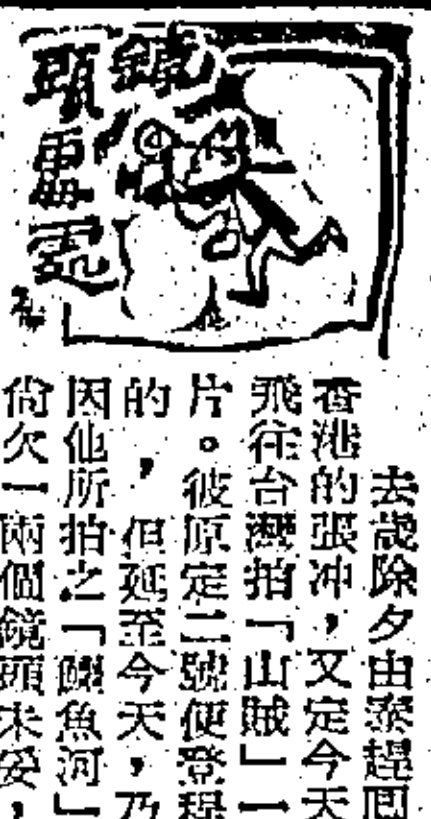 鏡頭
雷電
去歲除夕由泰趕回
香港的張冲，又定今天
飛往台灣拍「山賊」一
片。彼原定二號便登程
的，但延至今天，乃
因他所拍之「鱷魚河」
尙欠一兩個鏡頭未妥，